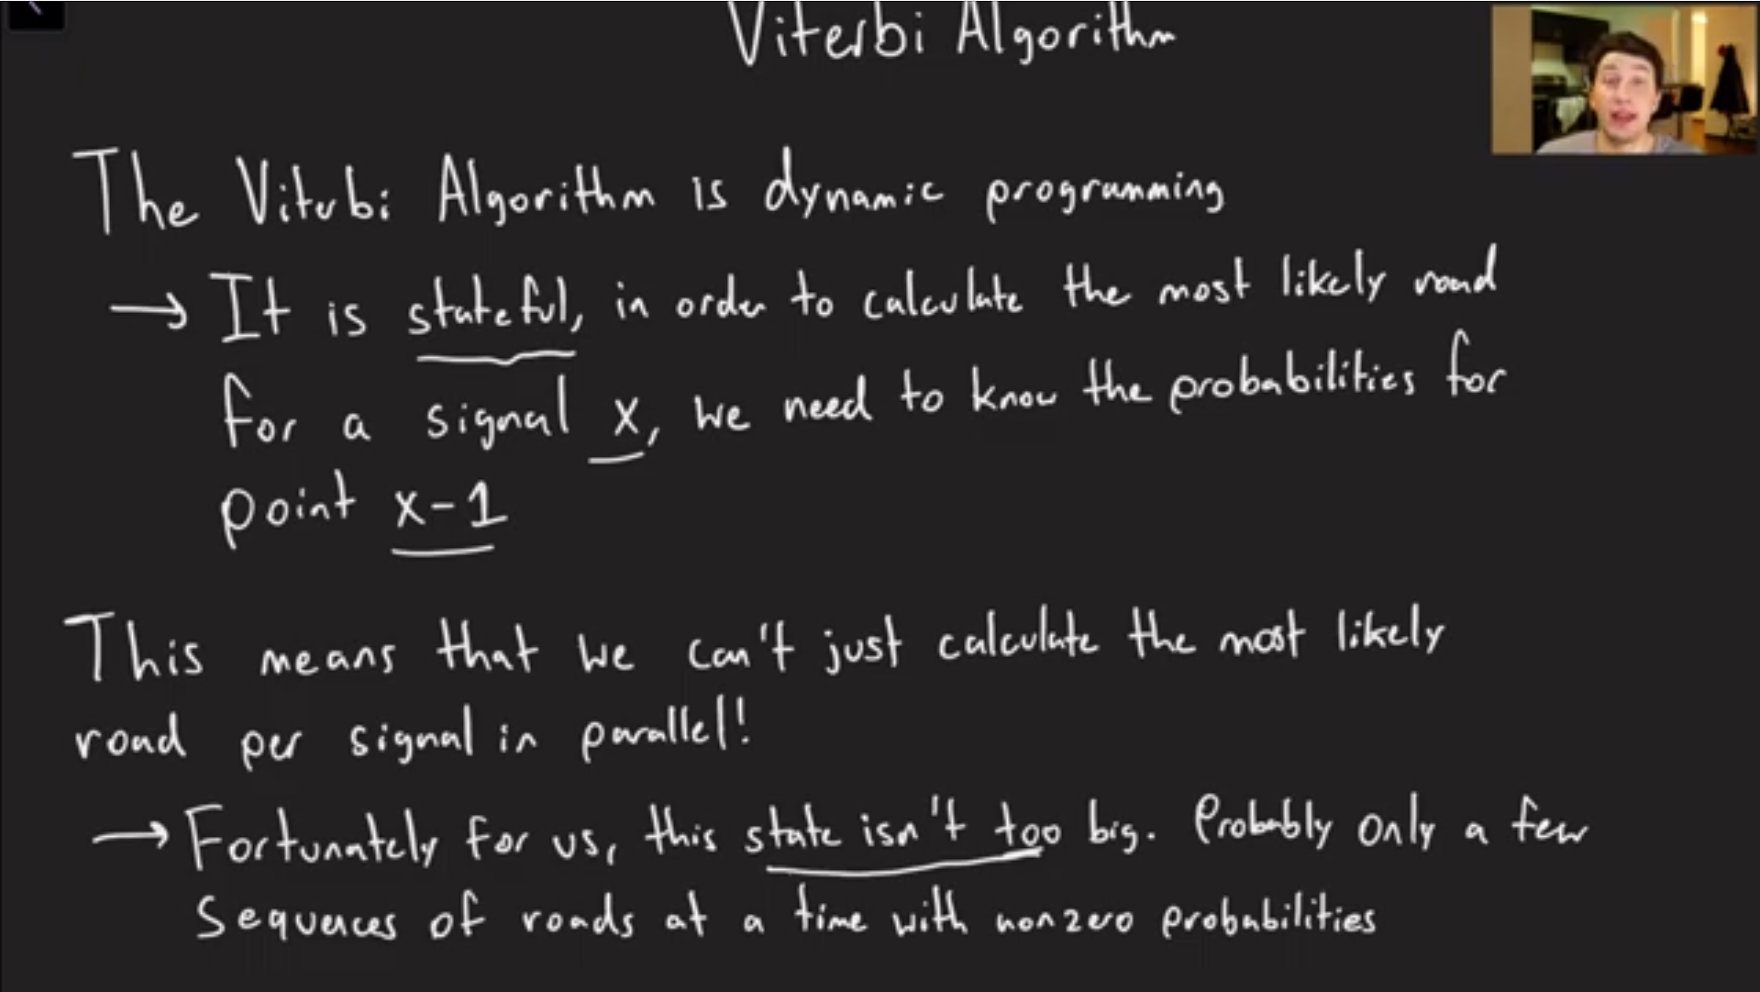 Viterbi Algorithm
The Viterbi Algorithm is dynamic programming
→ It is stateful, in order to calculate the most likely road
for a signal x, we need to know the probabilities for
point x-1
This means that we can't just calculate the most likely
road per signal in parallel!
→ Fortunately for us, this state isn't too big. Probably only a few
sequences of roads at a time with nonzero probabilities